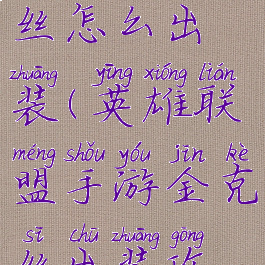 丝怎么出
zhuāng yīng xióng lián
装(英雄联
méng shǒu yóu jīn kè
盟手游金克
sī chū zhuāng gōng
丝出装攻